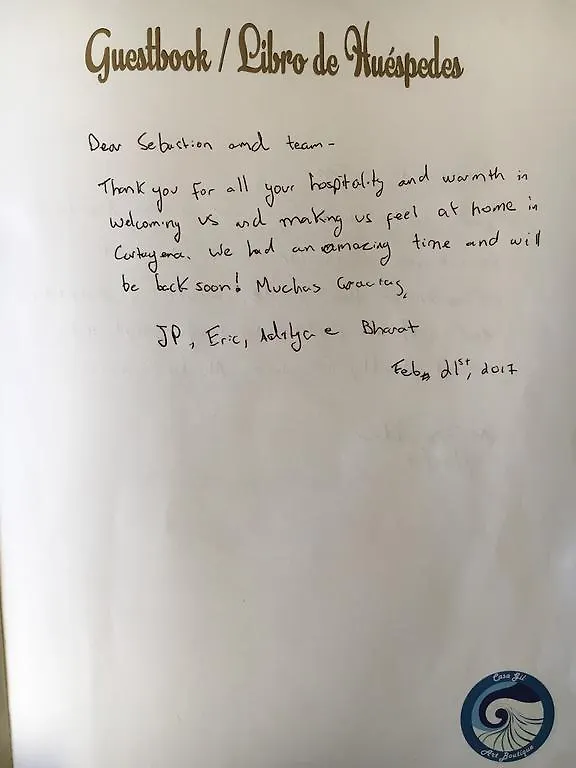 Guestbook / Libro de Huéspedes
Dear Sebastion and team-
Thank you for all your hospitality and warmth in
welcoming us and making us feel at home in
Cartagena. We had an amazing time and will
be back soon! Muchas Gracias,
JP, Eric, Aditya e Bharat
Feb, 21st, 2017
Casa Gil
Art Boutique